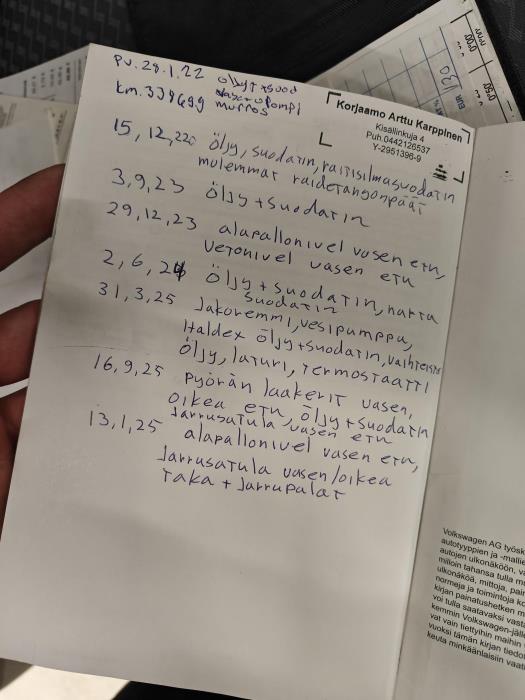 PV. 28.1.22 öljyt + suod
km. 339699 murros
Korjaamo Arttu Karppinen
Kisällinkuja 4
Puh.0442126537
Y-2951396-9
15,12,22 öljy, suodatin, raitisilmasuodatin
molemmat raidetangonpäät
3,9,23 öljy + suodatin
29,12,23 alapallonivel vasen etu,
vetonivel vasen etu
2,6,24 öljy + suodatin,
suodatin
31,3,25 Jakoremmi, vesipumppu,
Haldex öljy + suodatin, vaihteisto
öljy, laturi, termostaatti
16,9,25 pyörän laakerit vasen,
oikea etu, öljy + suodatin
Jarrusatula vasen etu
13,1,25 alapallonivel vasen etu,
Jarrusatula vasen/oikea
taka + Jarrupalat
Volkswagen AG työsk
autotyyppien ja -mallie
autojen ulkonäköön, va
milloin tahansa tulla m
ulkonäköä, mittoja, pain
normeja ja toimintoja ko
kirjan painatushetken m
voi tulla saatavaksi vasta
kemmin Volkswagen-jäl
vat vain tiettyihin maihin
vuoksi tämän kirjan tiedo
keuta minkäänlaisiin vaat